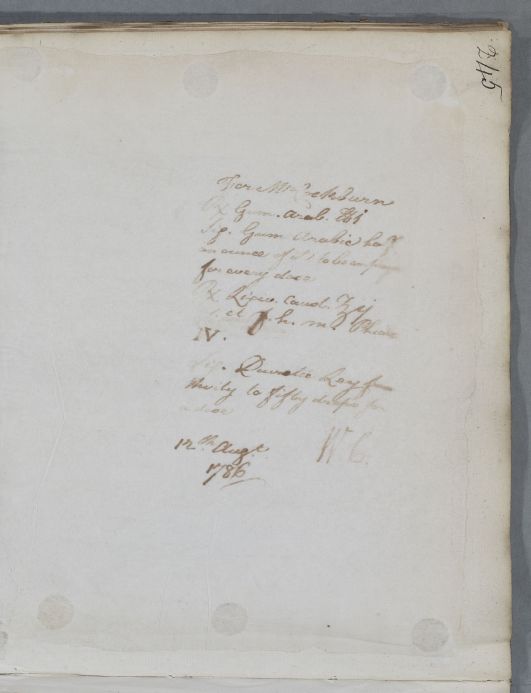 245
For Mr Cockburn
℞ Gum. arab. ℔i
Sig. Gum Arabic half
an ounce of it to be
for every dose
℞ Lixiv. caust. ℥ij
et f. h. m.
IV.
Sig. Ley from
thirty to fifty drops for
a dose
12th Augt.
1786
W. C.